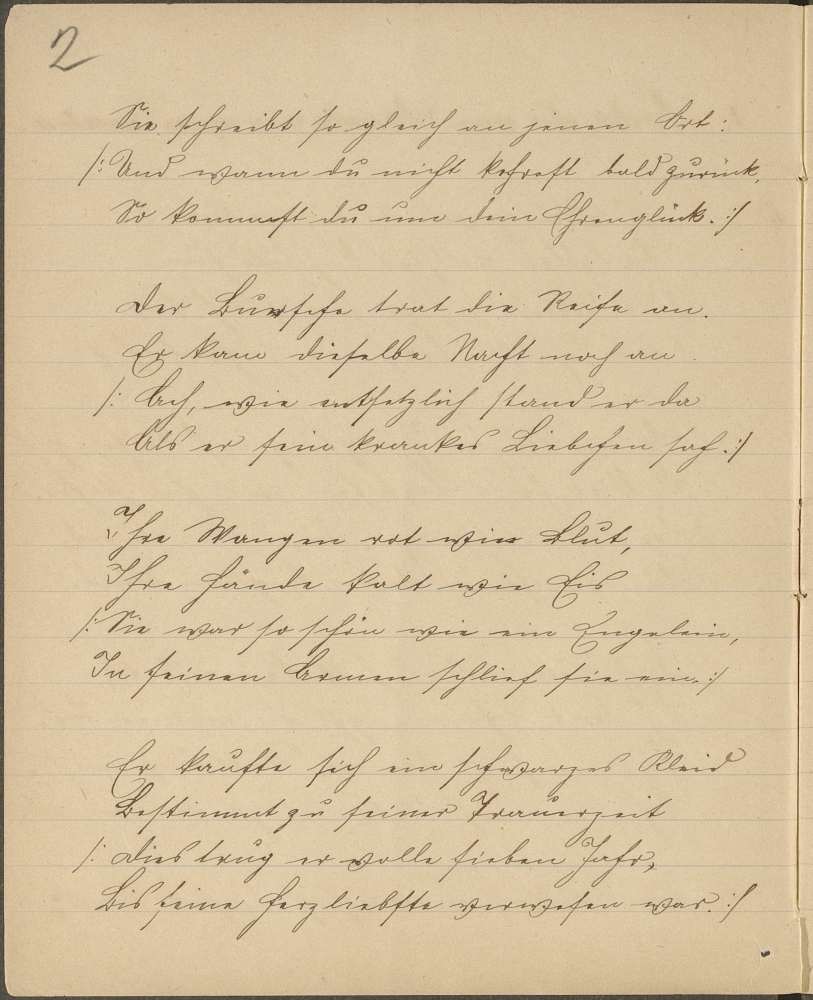 2
Sie schreibt so gleich an jenen Ort:
/: Und wann du nicht kehrest bald zurück,
So kommest du um dein Ehrenglück. :/
Der Bursche trat die Reise an.
Er kam dieselbe Nacht noch an
/: Ach, wie entsetzlich stand er da
Als er sein krankes Liebchen sah. :/
Ihre Wangen rot wie Blut,
Ihre Hände kalt wie Eis
/: Sie war so schön wie ein Engelein,
In seinen Armen schlief sie ein. :/
Er kaufte sich ein schwarzes Kleid
Bestimmt zu seiner Trauerzeit
/: Dies trug er volle sieben Jahr,
Bis seine Herzliebste verwesen war. :/